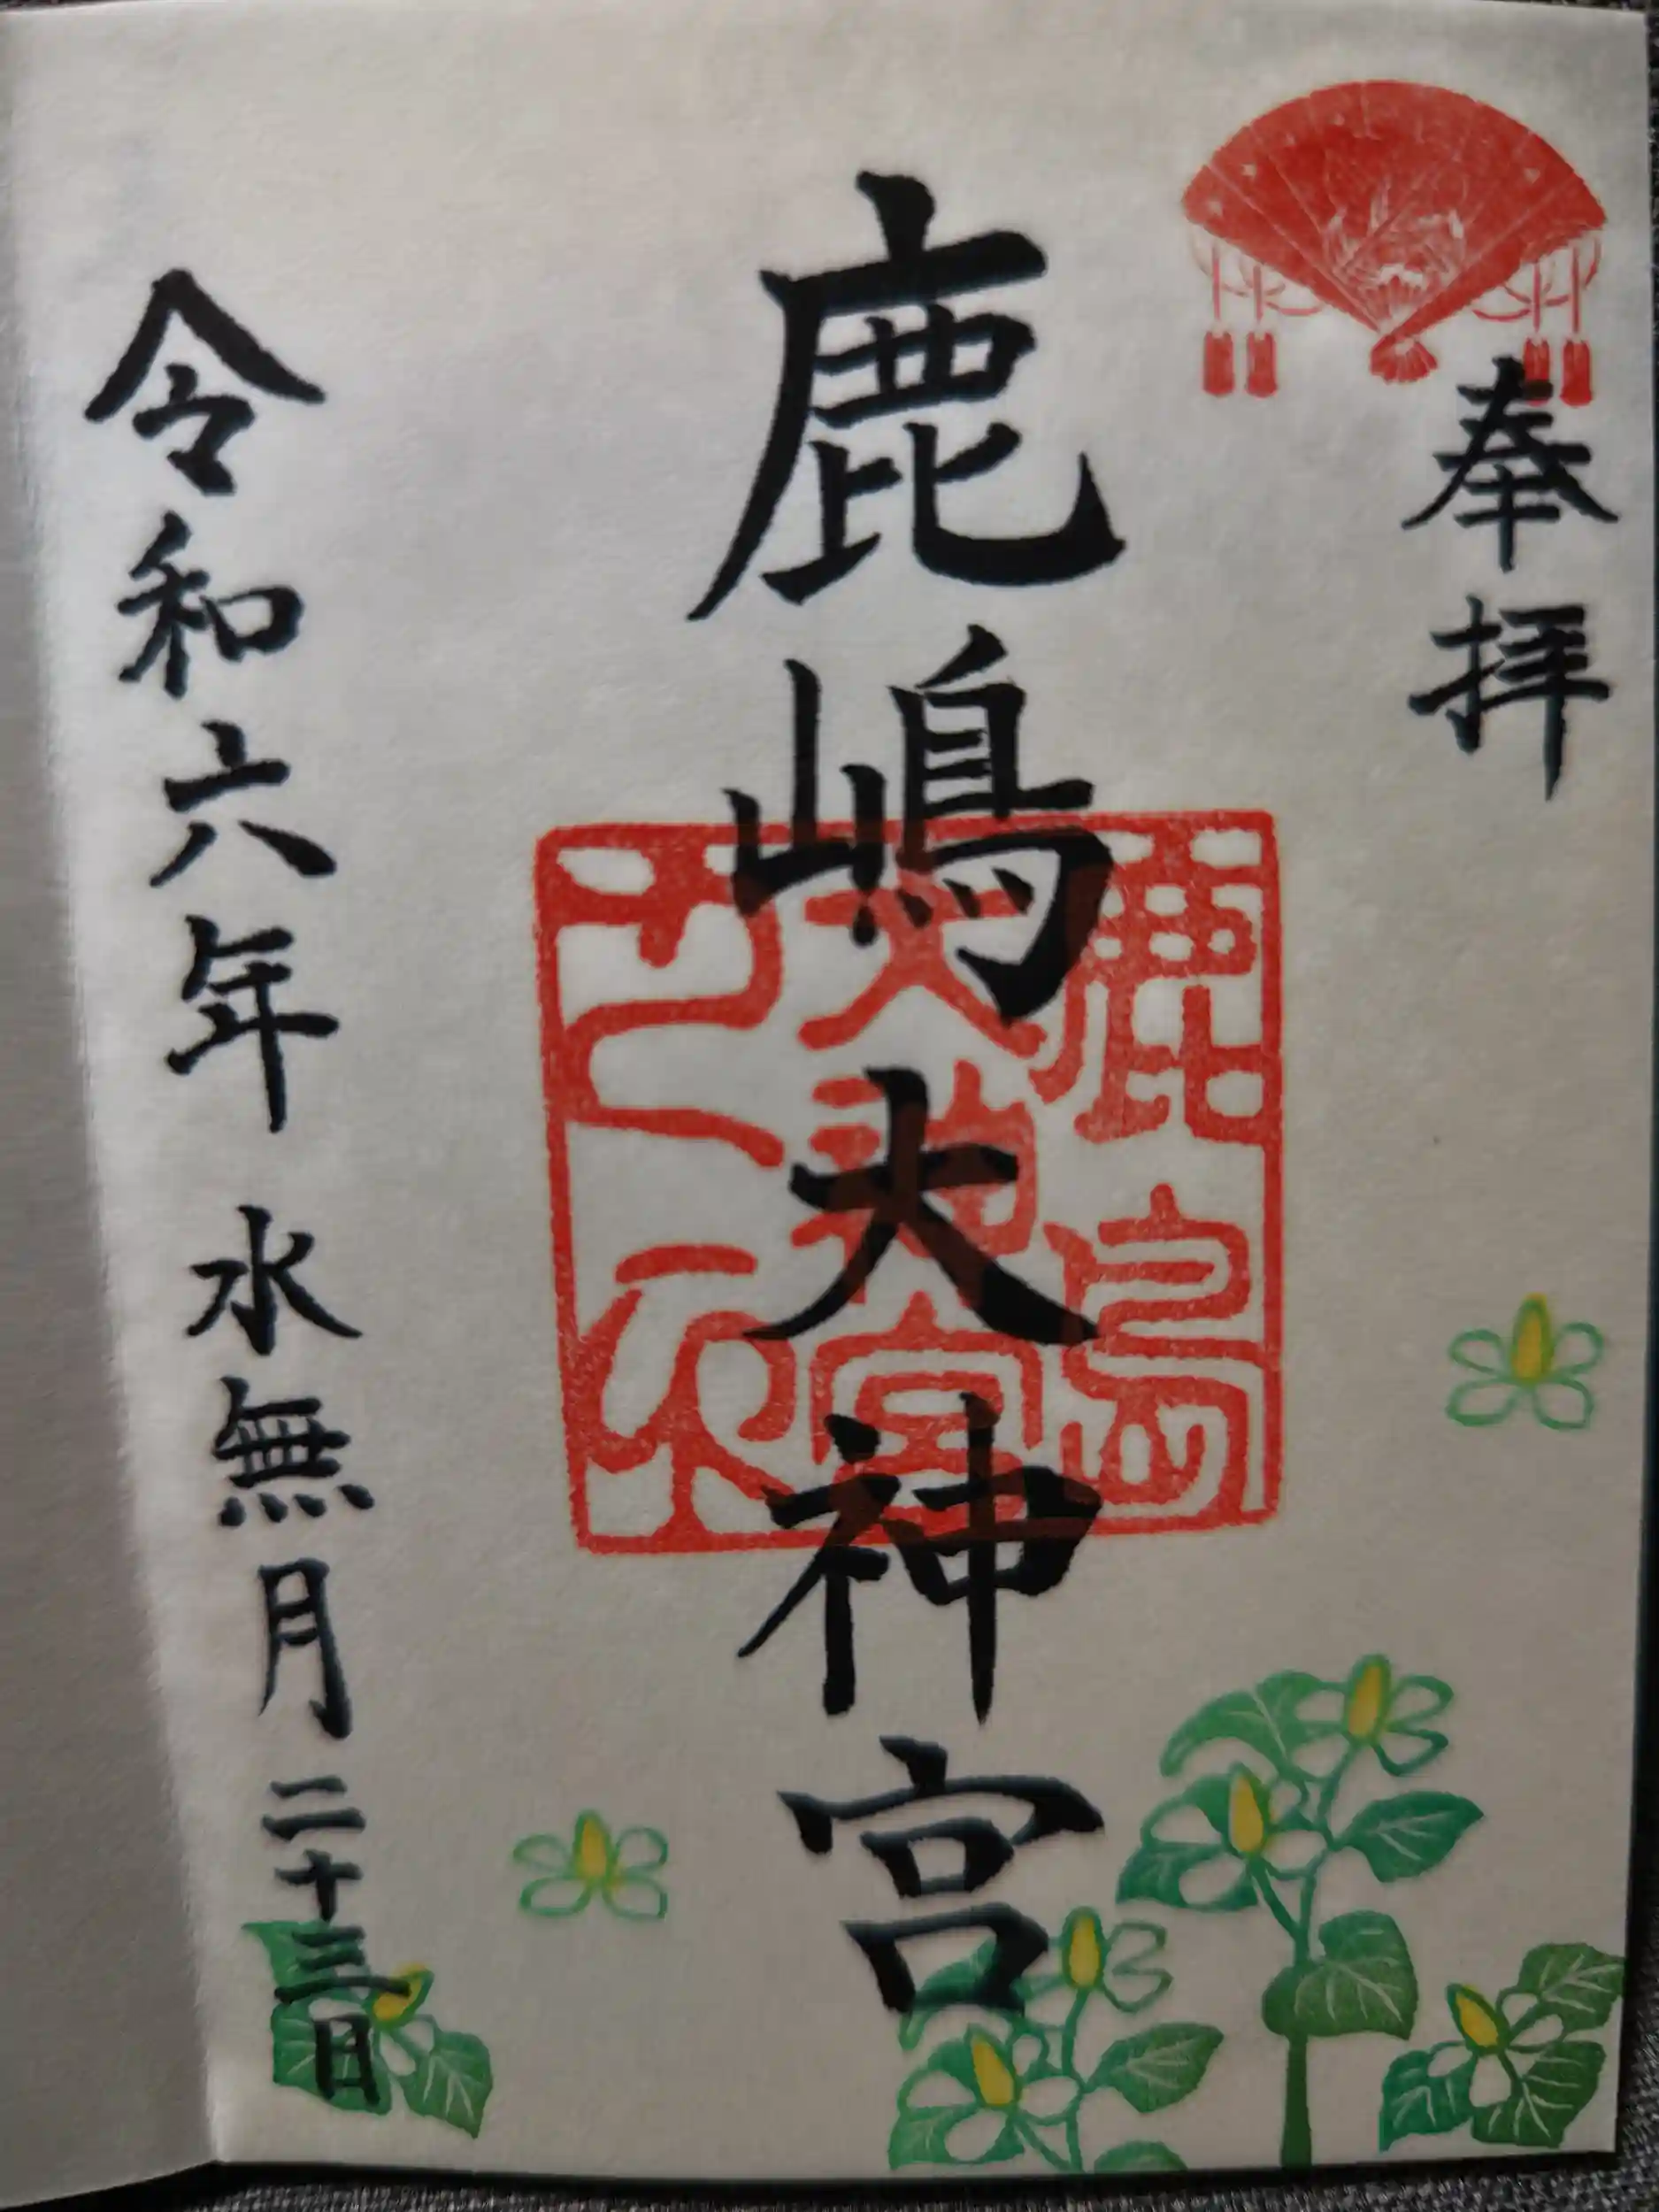 奉拝
鹿嶋大神宮
鹿島
大神宮
之印
令和六年 水無月 二十三日